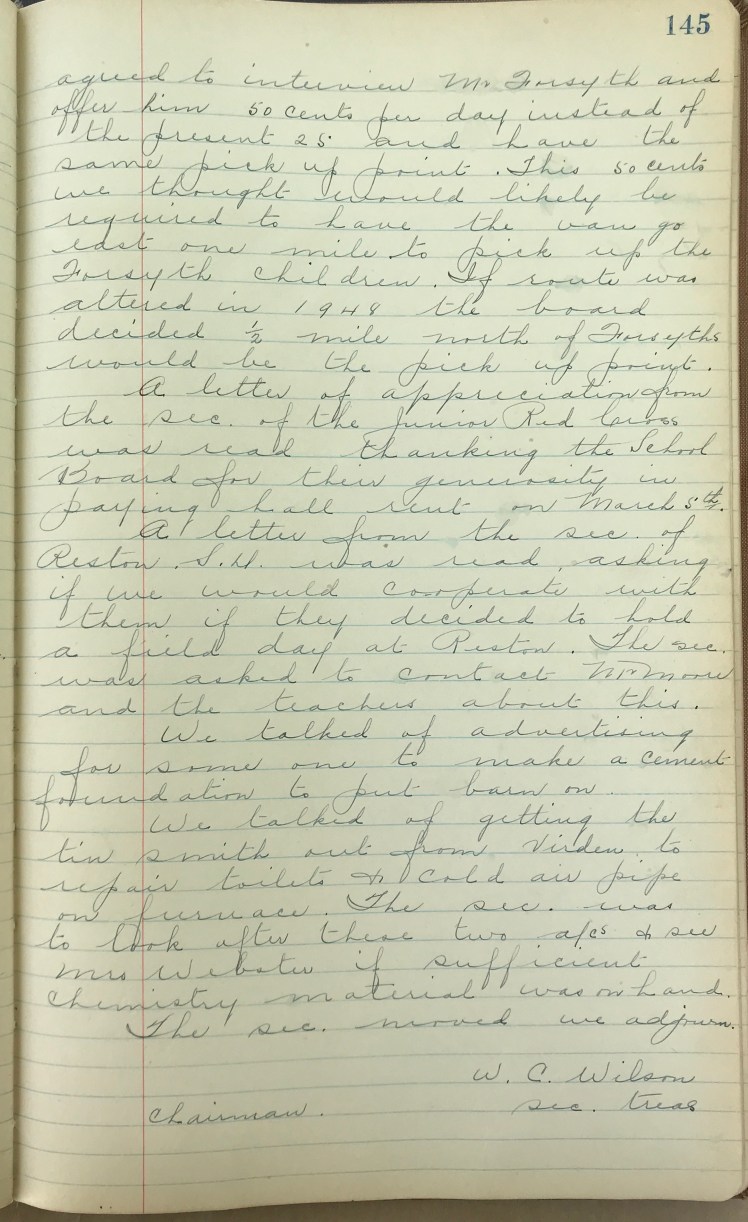 145
agreed to interview Mr Forsyth and
offer him 50 cents per day instead of
the present 25 and have the
same pick up point. This 50 cents
we thought would likely be
required to have the van go
east one mile to pick up the
Forsyth children. If route was
altered in 1948 the board
decided ½ mile north of Forsyths
would be the pick up point.
A letter of appreciation from
the sec. of the Junior Red Cross
was read thanking the School
Board for their generosity in
paying hall rent on March 5th.
A letter from the sec. of
Reston S.D. was read, asking
if we would cooperate with
them if they decided to hold
a field day at Reston. The sec.
was asked to contact Mr Moore
and the teachers about this.
We talked of advertising
for some one to make a cement
foundation to put barn on.
We talked of getting the
tin smith out from Virden to
repair toilets & cold air pipe
on furnace. The sec. was
to look after these two a/cs & see
Mrs Webster if sufficient
chemistry material was on hand.
The sec. moved we adjourn.
W. C. Wilson
Chairman. sec. treas